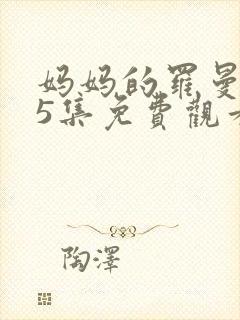 妈妈的羅曼
5集免費觀看
陶澤